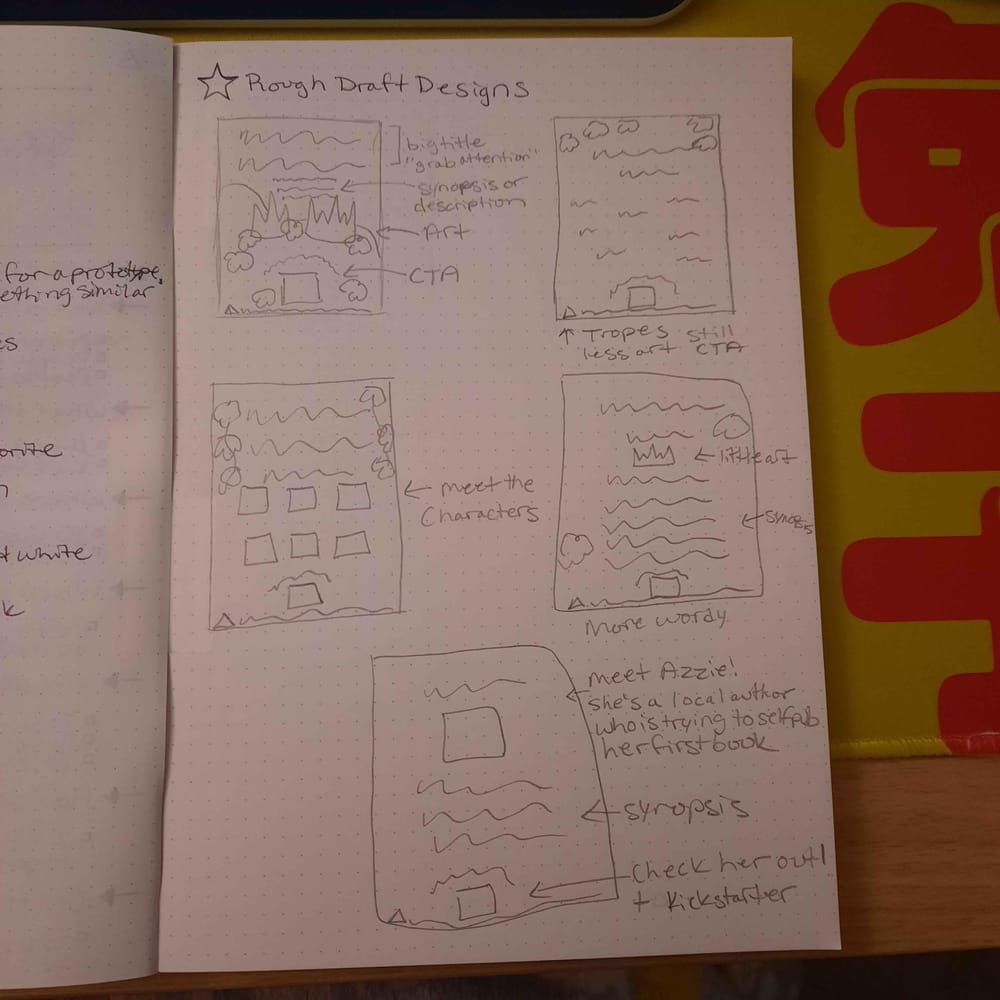 for a prototype,
ething similar
es
orite
n
t white
k
Rough Draft Designs
big title
"grab attention"
synopsis or
description
Art
CTA
↑ Tropes still
less art CTA
← meet the
Characters
← little art
← synopsis
More wordy
meet Azzie!
she's a local author
who is trying to self pub
her first book
← synopsis
Check her out!
+ Kickstarter